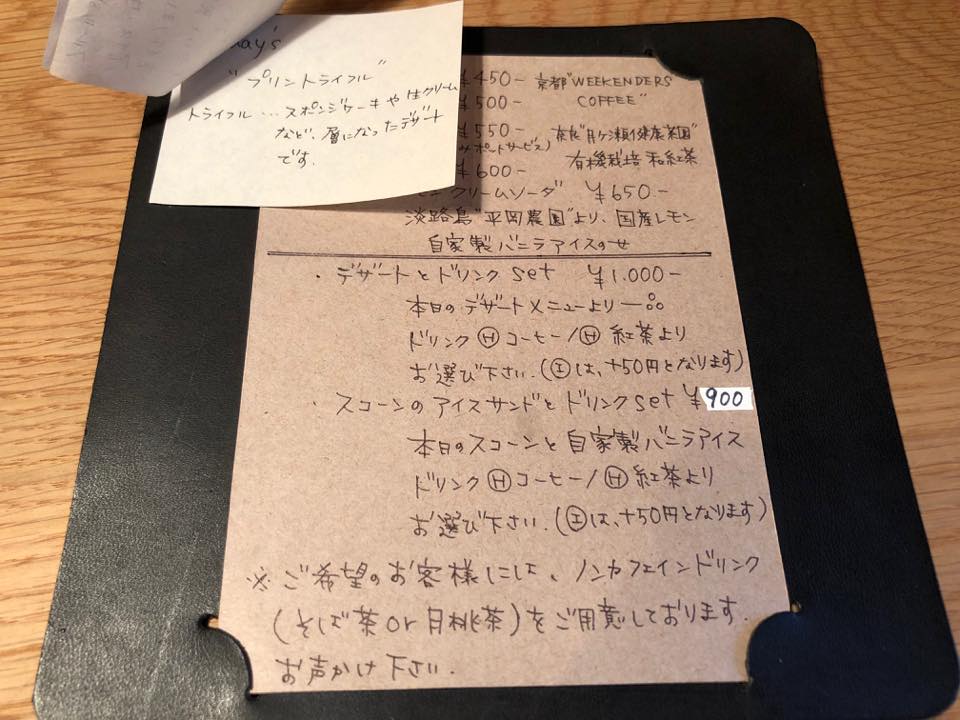 "プリントライフル"
トライフル…スポンジケーキや生クリーム
など、層になったデザート
です.
¥450- 京都"WEEKENDERS
¥500- COFFEE"
¥550- 奈良"月ヶ瀬健康茶園"
ポットサービス) 有機栽培 和紅茶
¥600-
クリームソーダ ¥650-
淡路島"平岡農園"より、国産レモン
自家製バニラアイスのせ
・デザートとドリンクset ¥1.000-
本日のデザートメニューより一つ
ドリンク Ⓗコーヒー/Ⓗ紅茶より
お選び下さい.(Ⓘは、+50円となります)
・スコーンのアイスサンドとドリンクset ¥900
本日のスコーンと自家製バニラアイス
ドリンク Ⓗコーヒー/Ⓗ紅茶より
お選び下さい.(Ⓘは、+50円となります)
※ご希望のお客様には、ノンカフェインドリンク
(そば茶or月桃茶)をご用意しております.
お声かけ下さい.